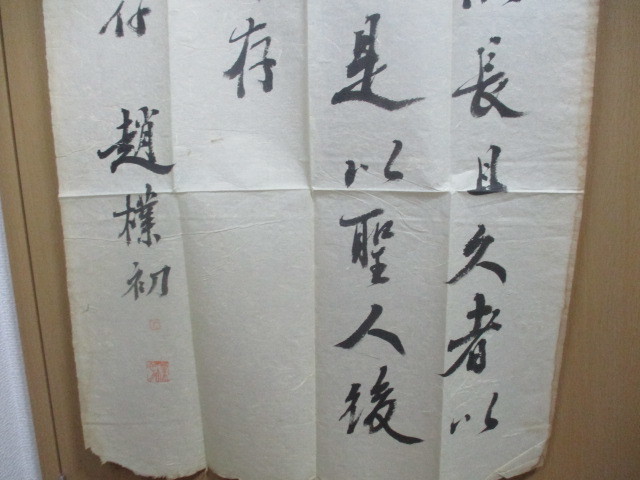 長且久者以
是以聖人後
存
趙樸初